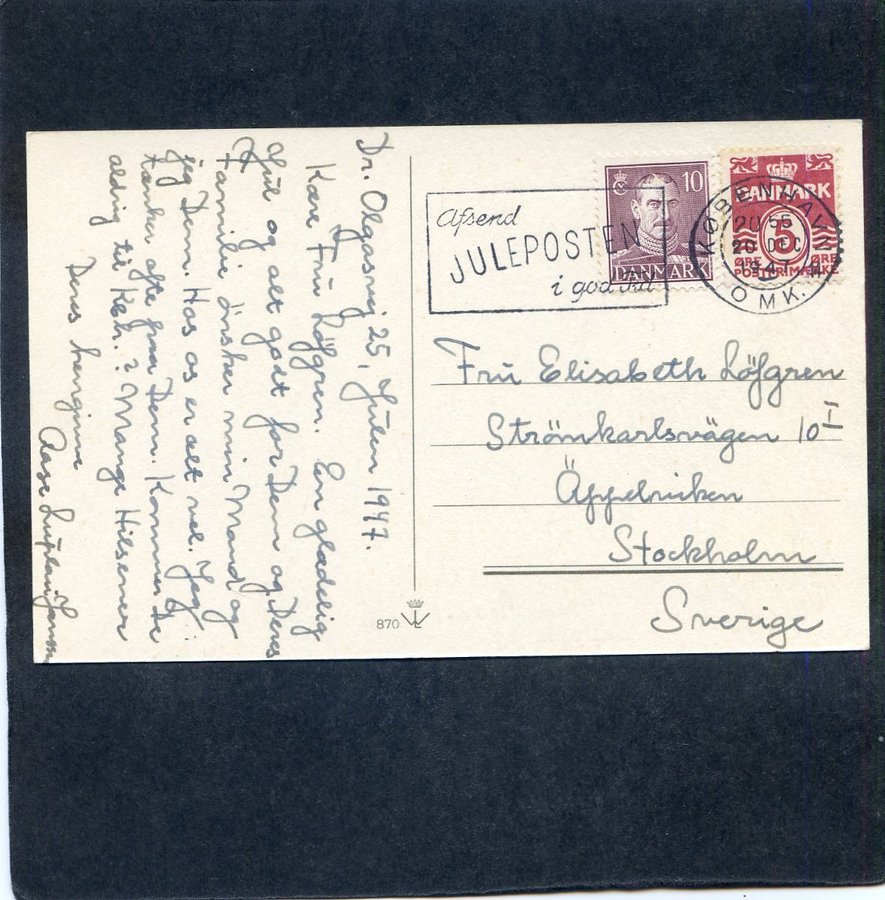 Dr. Olgasvej 25, Julen 1947.
Kære Fru Löfgren. En glædelig
Jul og alt godt for Dem og Deres
Familie ønsker min Mand og
jeg Dem. Hos os er alt vel. Jeg
tænker ofte paa Dem. Kommer De
aldrig til Kbh.? Mange Hilsener
Deres hengivne
Afsend
JULEPOSTEN
i god tid
10
DANMARK
DANMARK
5
ØRE ØRE
POSTFRIMÆRKE
KØBENHAVN
20 DEC
1947
OMK.
Fru Elisabeth Löfgren
Strömkarlsvägen 10 I
Äppelviken
Stockholm
Sverige
870